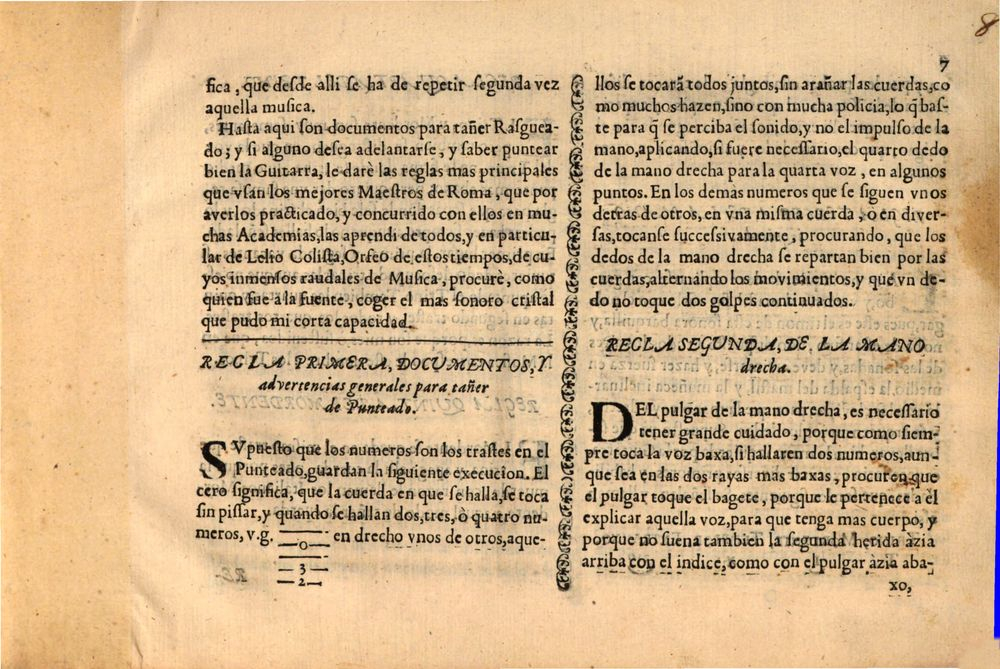 8
7
fica, que desde alli se ha de repetir segunda vez
aquella musica.
Hasta aqui son documentos para tañer Rasguea-
do; y si alguno desea adelantarse, y saber puntear
bien la Guitarra, le darè las reglas mas principales
que vsan los mejores Maestros de Roma, que por
averlos practicado, y concurrido con ellos en mu-
chas Academias, las aprendi de todos, y en particu-
lar de Lelio Colista, Orfeo de estos tiempos, de cu-
yos inmensos raudales de Musica, procurè, como
quien fue à la fuente, coger el mas sonoro cristal
que pudo mi corta capacidad.
REGLA PRIMERA, DOCUMENTOS, Y
advertencias generales para tañer
de Punteado.
SVpuesto que los numeros son los trastes en el
Punteado, guardan la siguiente execucion. El
cero significa, que la cuerda en que se halla, se toca
sin pissar, y quando se hallan dos, tres, ò quatro nu-
meros, v.g. 0 en drecho vnos de otros, aque-
3
2
llos se tocarã todos juntos, sin arañar las cuerdas, co
mo muchos hazen, sino con mucha policia, lo q̃ bas-
te para q̃ se perciba el sonido, y no el impulso de la
mano, aplicando, si fuere necessario, el quarto dedo
de la mano drecha para la quarta voz, en algunos
puntos. En los demàs numeros que se siguen vnos
detras de otros, en vna misma cuerda, ò en diver-
sas, tocanse successivamente, procurando, que los
dedos de la mano drecha se repartan bien por las
cuerdas, alternando los movimientos, y que vn de-
do no toque dos golpes continuados.
REGLA SEGUNDA, DE LA MANO
drecha.
DEL pulgar de la mano drecha, es necessario
tener grande cuidado, porque como siem-
pre toca la voz baxa, si hallaren dos numeros, aun-
que sea en las dos rayas mas baxas, procuren que
el pulgar toque el bagete, porque le pertenece a èl
explicar aquella voz, para que tenga mas cuerpo, y
porque no suena tambien la segunda herida àzia
arriba con el indice, como con el pulgar àzia aba-
xo,